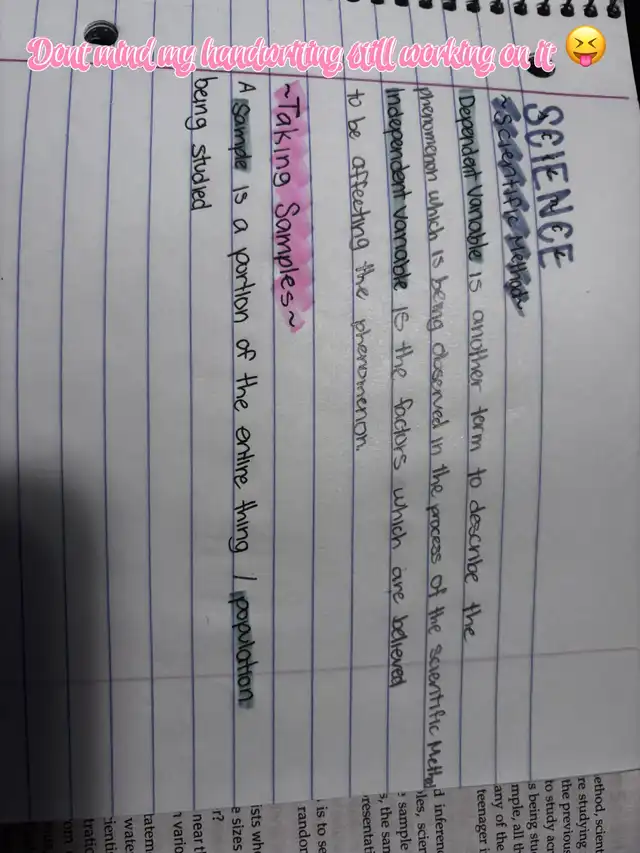 Dont mind my handwriting still working on it 😝
SCIENCE
~Scientific Method~
Dependent Variable is another term to describe the
phenomenon which is being observed in the process of the scientific Method
Independent variable is the factors which are believed
to be affecting the phenomenon.
~Taking Samples~
A sample is a portion of the entire thing / population
being studied
ethod, scient
re studying
the previous
to study acr
s being stu
mple, all th
any of the
teenager i
d inferenc
les, scien
e sample
s, the sam
resentati
is to se
random
ists wh
e sizes
r?
near t
n vario
latem
wate
cienti
tratio